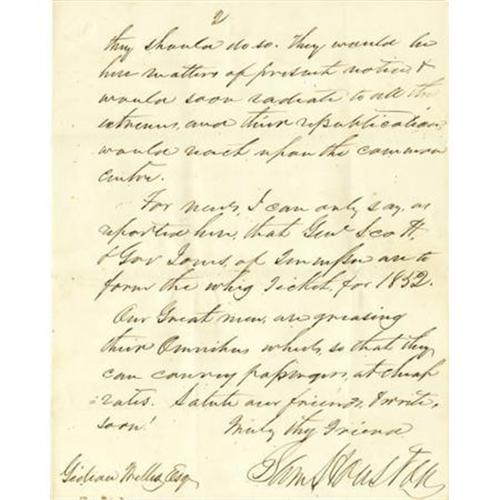 2
they should do so. They would be
here matters of present notice &
would soon radiate to all the
extremes, and their republication
would react upon the common
centre.
For news, I can only say, as
reported here, that Genl Scott,
& Gov Jones, of Tennessee are to
form the whig Ticket, for 1852.
Our Great men, are greasing
their Omnibus wheels, so that they
can convey passengers, at cheap
rates. Salute our friends, & write,
soon!
Truly thy Friend
Sam Houston
Gideon Welles, Esq